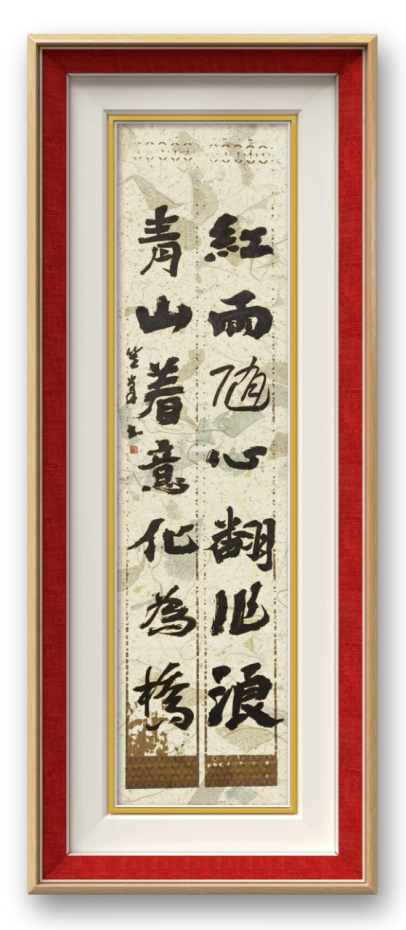 紅雨随心翻作浪
青山着意化為橋